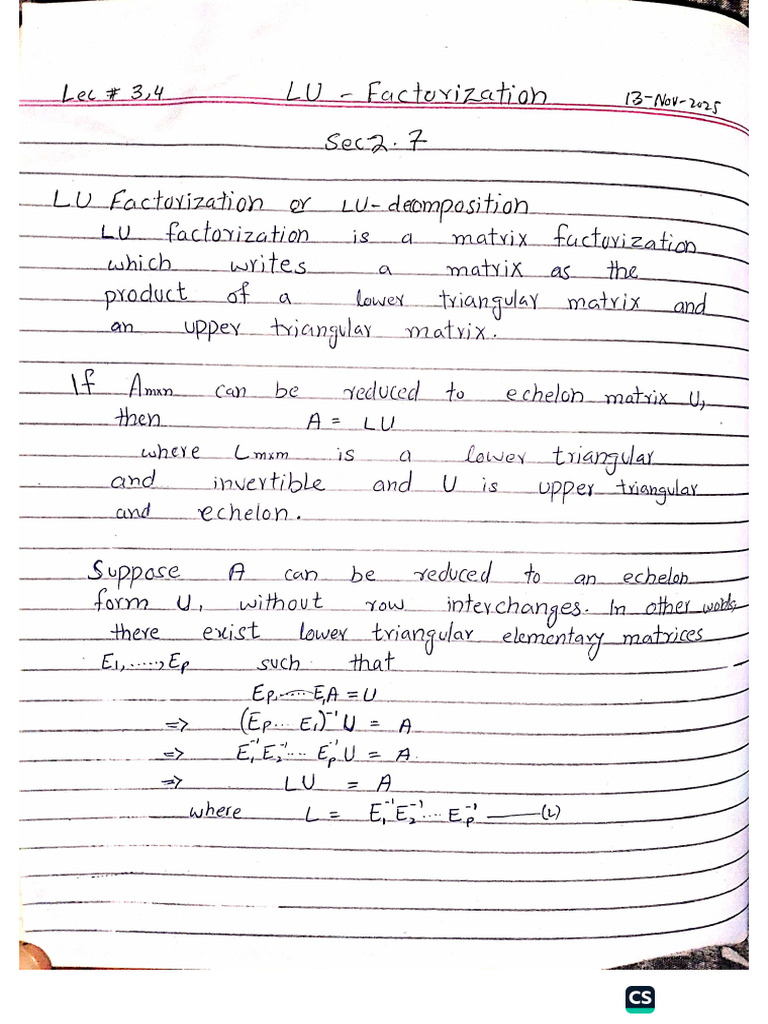 Lec # 3,4 LU - Factorization 13-Nov-2025
Sec 2.7
LU Factorization or LU-decomposition
LU factorization is a matrix factorization
which writes a matrix as the
product of a lower triangular matrix and
an upper triangular matrix.
If Aₘₓₙ can be reduced to echelon matrix U,
then A = LU
where Lₘₓₘ is a lower triangular
and invertible and U is upper triangular
and echelon.
Suppose A can be reduced to an echelon
form U, without row interchanges. In other words,
there exist lower triangular elementary matrices
E₁,.....,Eₚ such that
Eₚ.....E₁A = U
=> (Eₚ... E₁)⁻¹ U = A
=> E₁⁻¹E₂⁻¹... Eₚ⁻¹U = A.
=> LU = A
where L = E₁⁻¹E₂⁻¹... Eₚ⁻¹ ——(2)
CS